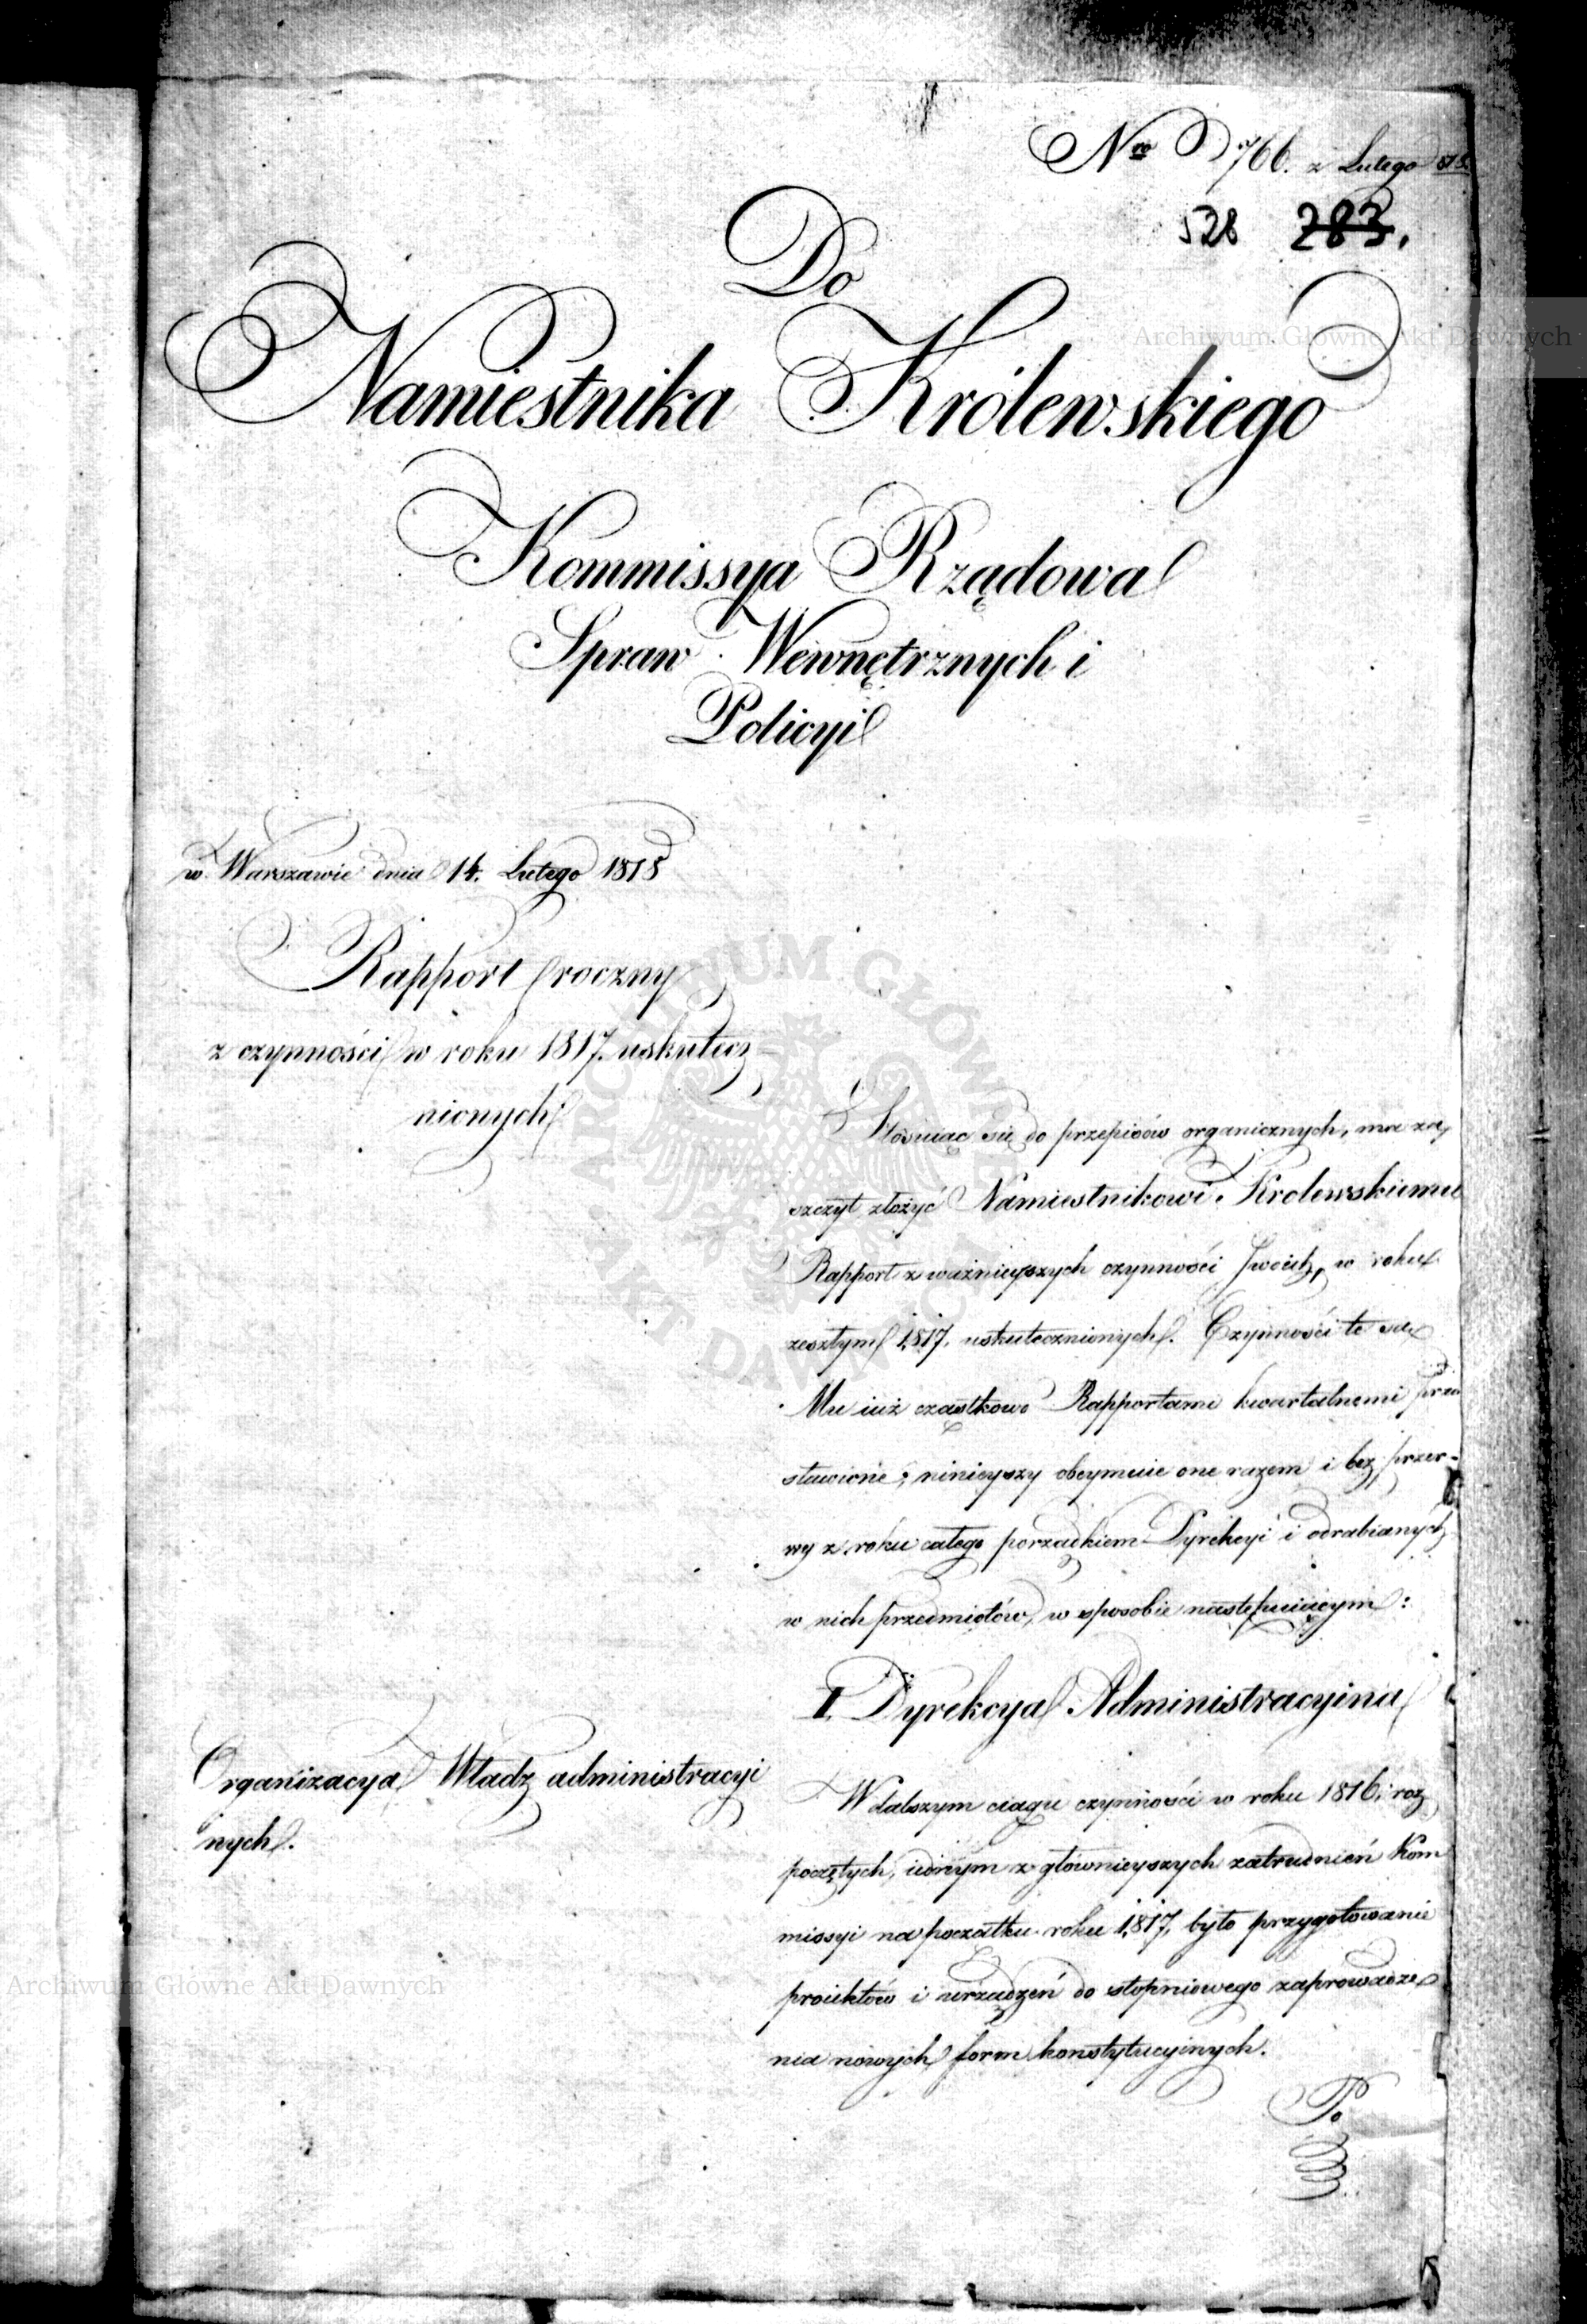 Nro 766. z Lutego 818.
528 283.
Do
Namiestnika Królewskiego
Kommissya Rządowa
Spraw Wewnętrznych i
Policyi
w Warszawie dnia 14. Lutego 1818
Rapport roczny
z czynności w roku 1817. uskutecz
nionych.
Stósuiąc się do przepisów organicznych, ma za,
szczyt złożyć Namiestnikowi Królewskiemu
Rapport z ważnieyszych czynności Swoich, w roku
zeszłym 1817. uskutecznionych. Czynności te są
Mu iuż cząstkowo Rapportami kwartalnemi przed
stawione; ninieyszy obeymuie one razem i bez przer-
wy z roku całego porządkiem Dyrekcyi i odrabianych
w nich przedmiotów, w sposobie następuiącym:
I. Dyrekcya Administracyina
Organizacya Władz administracyi
nych.
W dalszym ciągu czynności w roku 1816. roz
poczętych, iednym z głównieyszych zatrudnień Kom
missyi na początku roku 1817. było przygotowanie
proiektów i urządzeń do stopniowego zaprowadze
nia nowych form konstytucyinych.
Po
Archiwum Główne Akt Dawnych
Archiwum Główne Akt Dawnych
ARCHIWUM GŁÓWNE AKT DAWNYCH